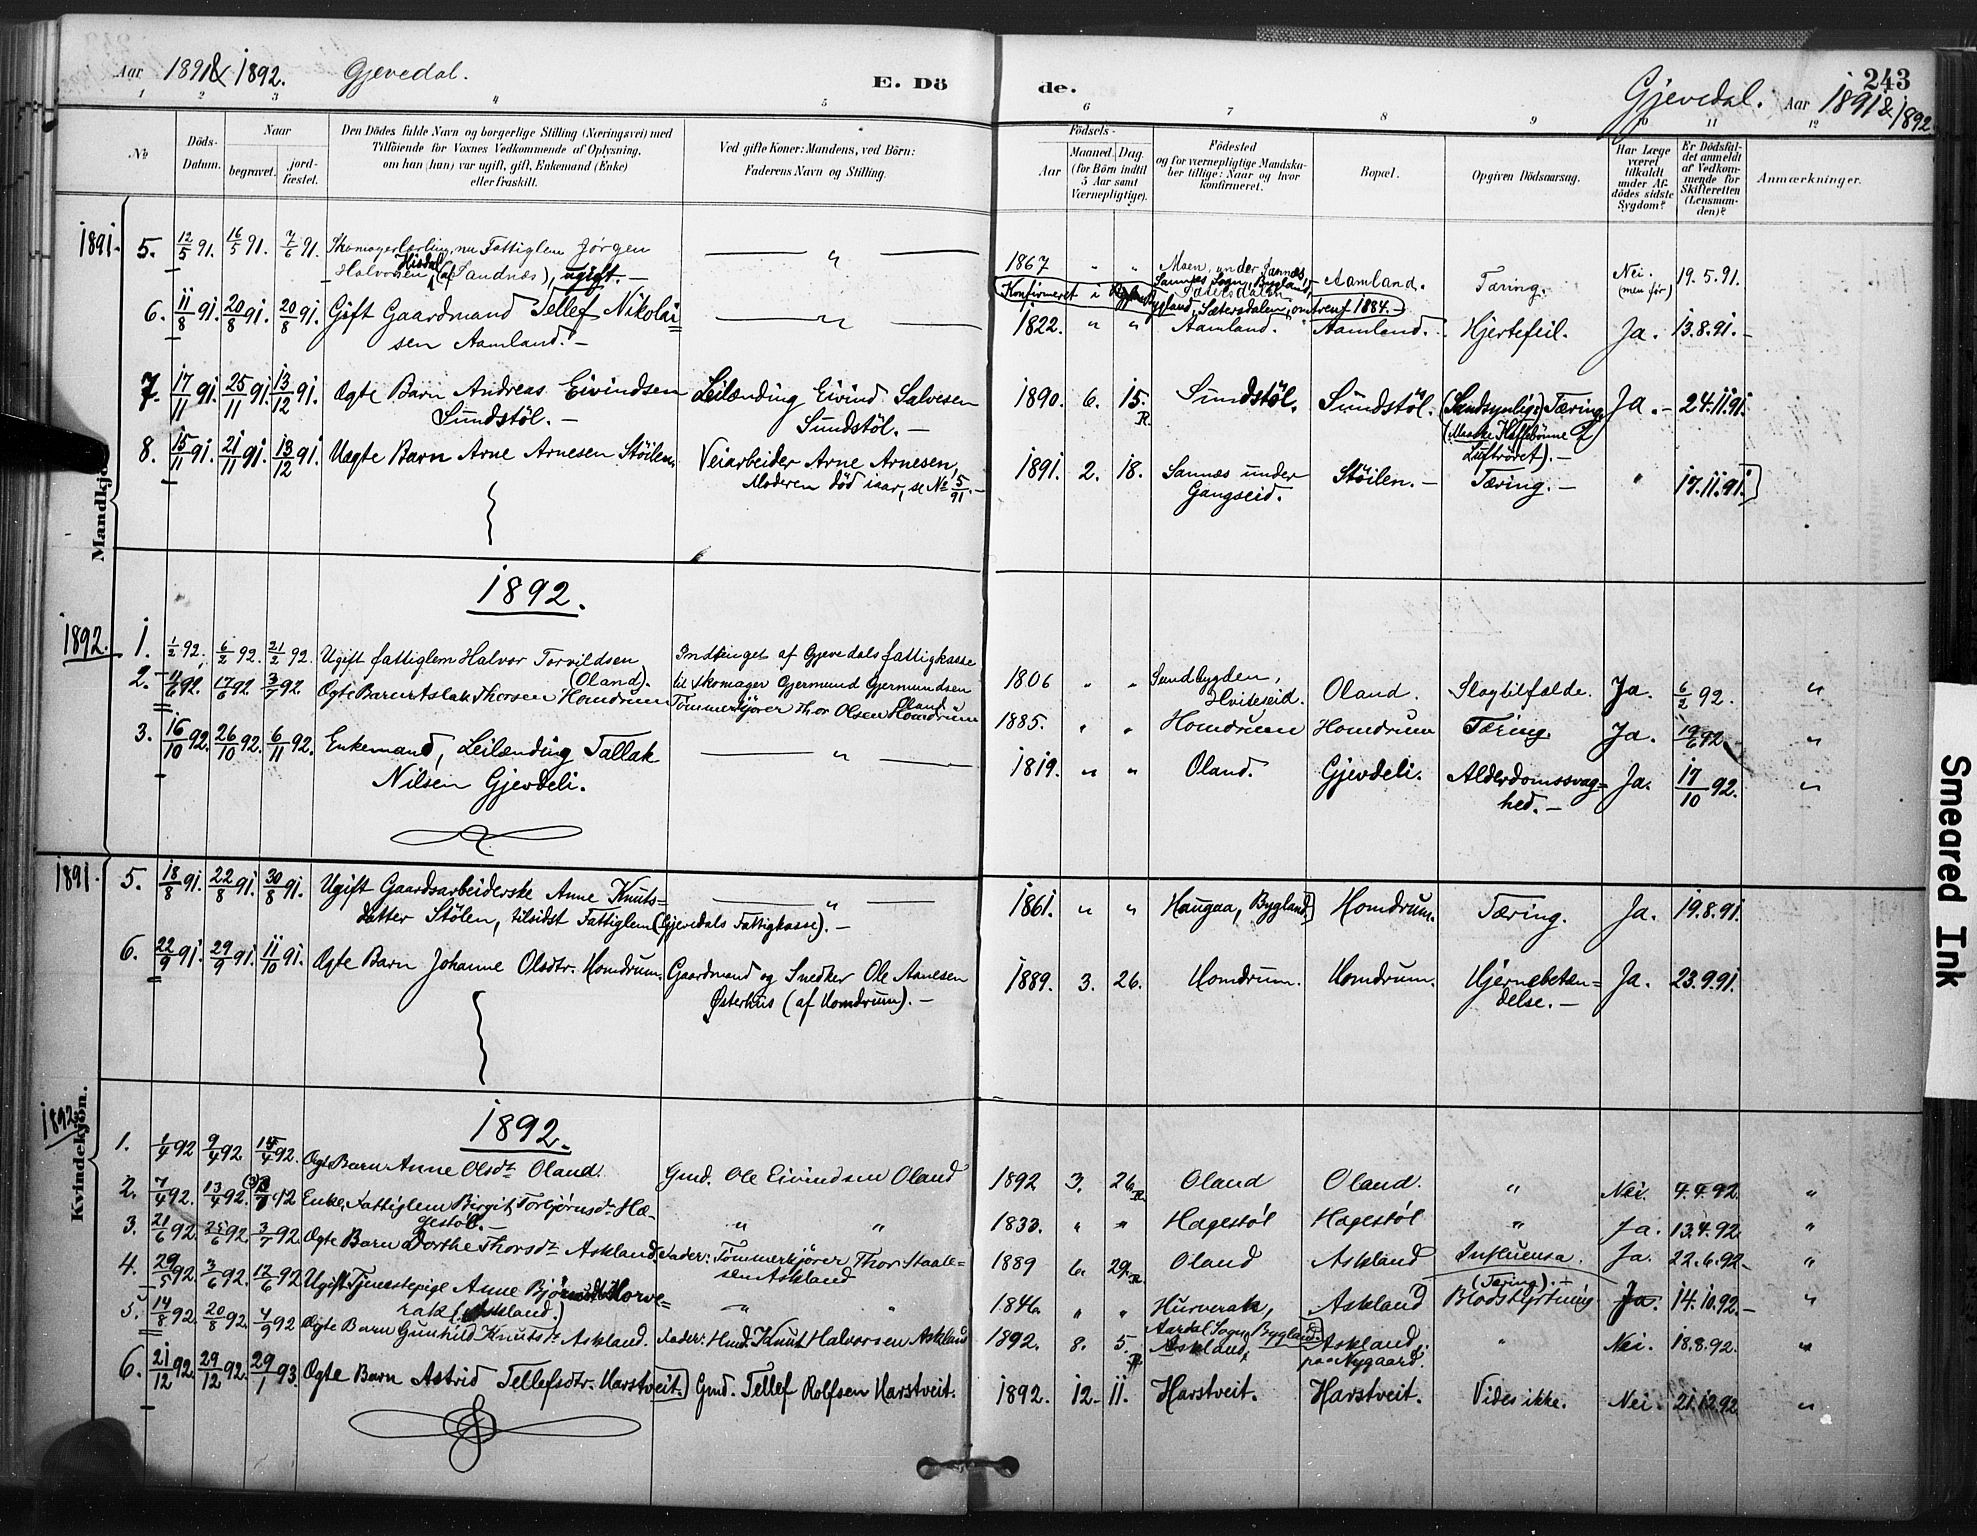 Aar 1891 & 1892. Gjevedal. E. Dö de. Gjevedal. Aar 1891 & 1892. 243
1 2 3 4 5 6 7 8 9 10 11 12
No
Döds-Datum.
Naar
begravet.
jord-fæstet.
Den Dödes fulde Navn og borgerlige Stilling (Næringsvei) med
Tilföiende for Voxnes Vedkommende af Oplysning,
om han (hun) var ugift, gift, Enkemand (Enke)
eller fraskilt.
Ved gifte Koner: Mandens, ved Börn:
Faderens Navn og Stilling.
Födsels-
Aar
Maaned. Dag.
(for Börn indtil
5 Aar samt
Værnepligtige).
Födested
og for værnepligtige Mandska-
ber tillige: Naar og hvor
konfirmeret.
Bopæl.
Opgiven Dödsaarsag.
Har Læge
været
tilkaldt
under Af-
dödes sidste
Sygdom?
Er Dödsfal-
det anmeldt
af Vedkom-
mende for
Skifteretten
(Lensman-
den)?
Anmærkninger.
Mandkjön.
1891.
5. 12/5 91. 16/5 91. 7/6 91. Skomagerlærling, nu Fattiglem Jørgen
Halvorsen Misdal (af Sandnæs), ugift. — — „ —
1867 „ „ Moen, under Sannæs,
Sannæs Sogn, Bygland,
Sætersdalen
Aamland. Tæring. Nei. (men før) 19.5.91.
Konfirmeret i Bygland, Sætersdalen, omtrent 1884. —
6. 11/8 91. 20/8 91. 20/8 91. Gift Gaardmand Tellef Nikolai=
sen Aamland. — — „ —
1822. „ „ Aamland. Aamland. Hjertefeil. Ja. 13.8.91. —
7. 17/11 91. 25/11 91. 13/12 91. Ægte Barn Andreas Eivindsen
Sundstöl. —
Leilænding Eivind Salvesen
Sundstöl. —
1890. 6. 15. R. Sundstöl. Sundstöl. (Sandsynlig:) Tæring
(Maaske Kaffebönne i
Luftröret). —
Ja. — 24.11.91.
8. 15/11 91. 21/11 91. 13/12 91. Uægte Barn Arne Arnesen Stöilen.
Veiarbeider Arne Arnesen,
Moderen död iaar, se No 5/91. —
1891. 2. 18. Sannæs under
Gangseid.
Stöilen. — Tæring. — „ 17.11.91.
1892.
1892.
1. 1/2 92. 6/2 92. 21/2 92. Ugift fattiglem Halvor Torvildsen
(Oland).
Indtinget af Gjevedals fattigkasse
til skomager Gjermund Gjermundsen
Oland
1806 „ „ Sundbygden,
Hviteseid.
Oland. Slagtilfælde. Ja. 6/2 92. „
2. 11/6 92. 17/6 92 3/7 92. Ægte Barn Aslak Thorsen Homdrum
Tömmerkjörer Thor Olsen Homdrum
1885. „ „ Homdrum Homdrum Tæring Ja. 19/6 92 „
3. 16/10 92. 26/10 92. 6/11 92. Enkemand, Leilænding Tallak
Nilsen Gjevdeli.
— „ —
1819. „ „ Oland. Gjevdeli. Alderdomssvag=
hed. —
Ja. 17/10 92. „
Kvindekjön.
1891.
5. 18/8 91. 22/8 91. 30/8 91. Ugift Gaardsarbeiderske Anne Knuts=
datter Stölen, tilsidst Fattiglem (Gjevedals Fattigkasse). —
— „ —
1861. „ „ Haugaa, Bygland. Homdrum. Tæring. Ja. 19.8.91.
6. 22/9 91. 29/9 91. 11/10 91. Ægte Barn Johanne Olsdtr. Homdrum.
Gaardmand og Snedker Ole Aanesen
Østerhus (af Homdrum). —
1889. 3. 26. Homdrum. Homdrum. Hjernebetæn=
delse. —
Ja. 23.9.91.
1892.
1892.
1. 1/4 92 9/4 92 /4 92. Ægte Barn Anne Olsdr. Oland.
Gmd. Ole Eivindsen Oland
1892 3. 26. R. Oland Oland. „ Nei. 9.4.92. „
2. 7/4 92. 13/4 92. Enke, Fattiglem Birgit Torbjörnsdr. Hæ-
gestöl. —
„ „
1833. „ „ Hægestöl Hægestöl „ Ja. 13.4.92 „
3. 21/6 92. 25/6 92. 3/7 92. Ægte Barn Dorthe Thorsdr. Askland.
Fader: Tömmerkjörer Thor Staale=
sen Askland
1889 6. 29. R. Oland Askland Influensa. Ja. 22.6.92. „
(Tæring). —
4. 29/5 92. 3/6 92. 12/6 92. Ugift Tjenestepige Anne Horve=
rak (Askland.)
„ „
1846. „ „ Hurverak,
Aardal Sogn, Bygland.
Askland Blodstyrtning Ja. 14.10.92. — „
5. 14/8 92. 20/8 92. 4/9 92 Ægte Barn Gunhild Knutsdr. Askland.
Fader: Hmd. Knut Halvorsen Askland
1892. 8. 5. R. Askland, Askland,
paa Nygaard.
„ Nei. 18.8.92. „
6. 21/12 92. 29/12 92. 29/1 93. Ægte Barn Astrid Tellefsdtr. Harstveit.
Gmd. Tellef Rolfsen Harstveit.
1892. 12. 11. Harstveit. Harstveit. Vides ikke. Nei. 21.12.92 „
Smeared Ink